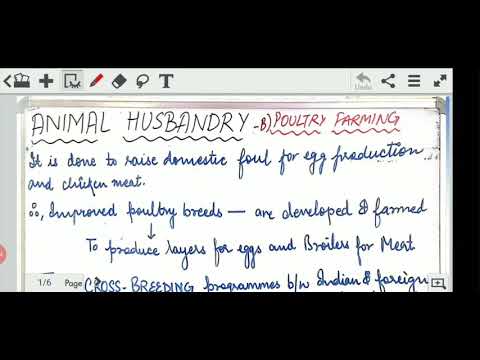 T
Undo
ANIMAL HUSBANDRY -B) POULTRY FARMING
It is done to raise domestic foul for egg production
and chicken meat.
∴, Improved poultry breeds — are developed & farmed
↓
To produce layers for eggs and Broilers for Meat
CROSS-BREEDING programmes b/w Indian & foreign
1/6 Page